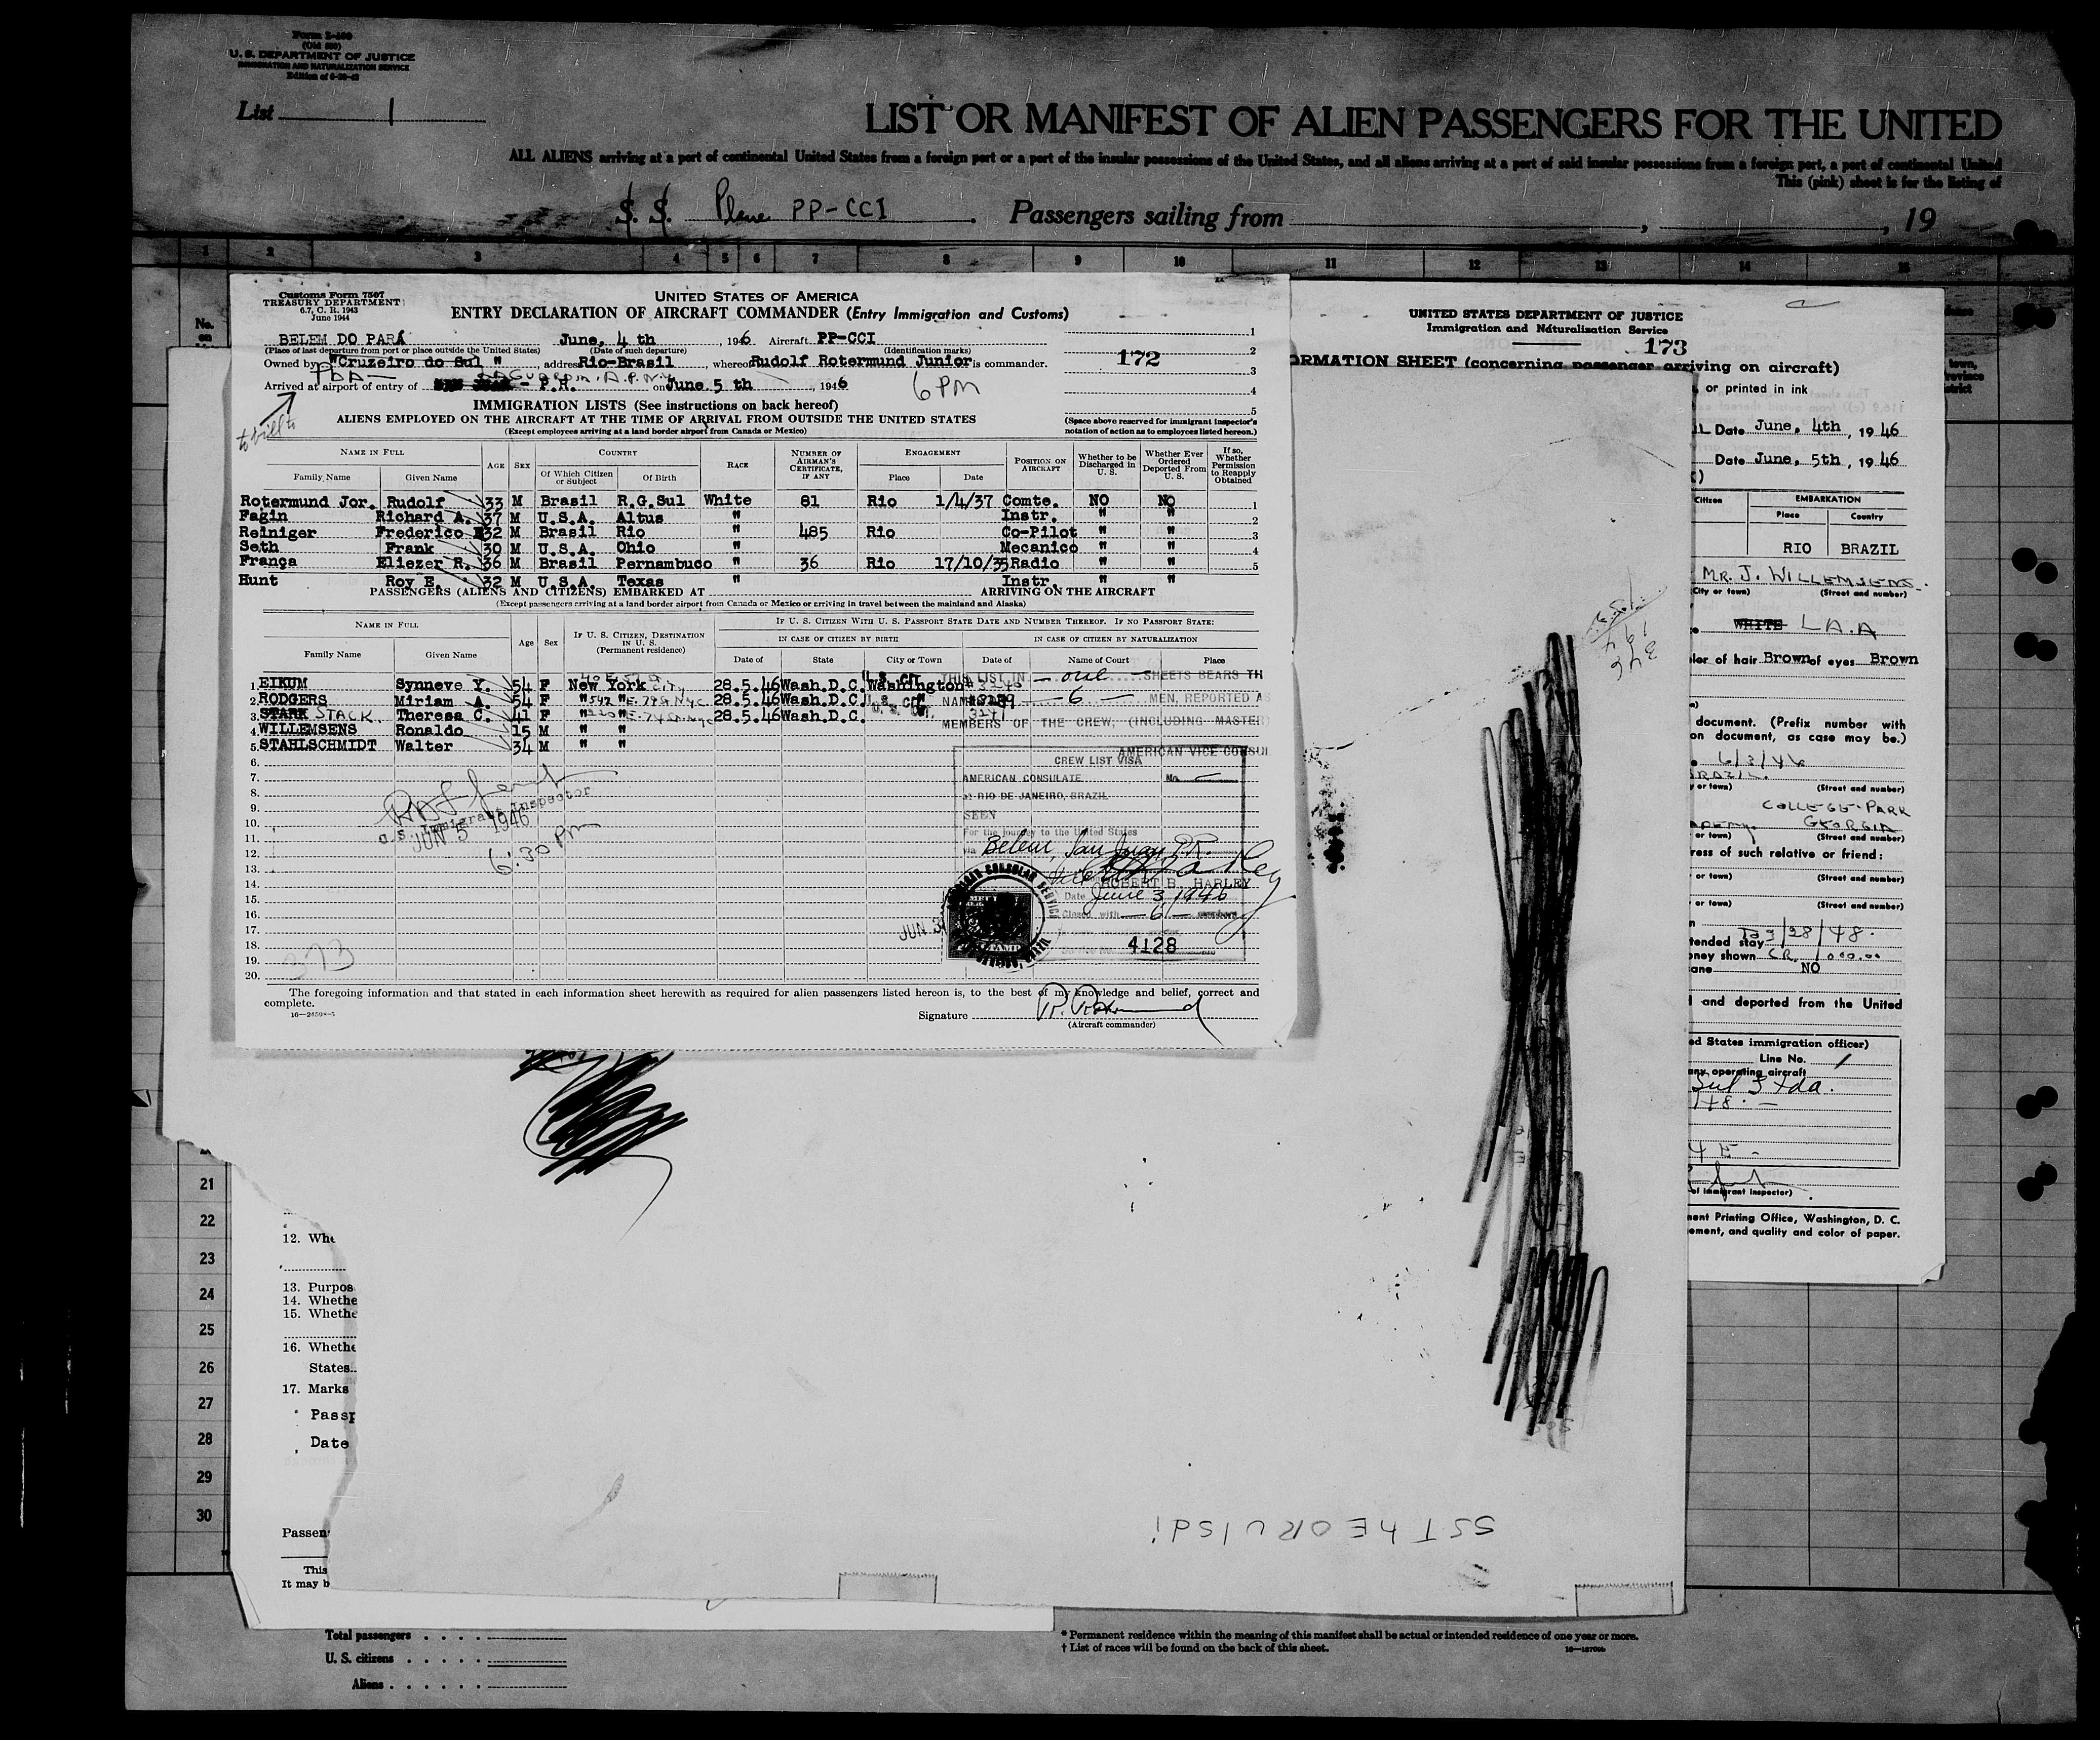 Form I-400
(Old 500)
U. S. DEPARTMENT OF JUSTICE
IMMIGRATION AND NATURALIZATION SERVICE
List 1
LIST OR MANIFEST OF ALIEN PASSENGERS FOR THE UNITED
ALL ALIENS arriving at a port of continental United States from a foreign port or a port of the insular possessions of the United States, and all aliens arriving at a port of said insular possessions from a foreign port, a port of continental United
This (pink) sheet is for the listing of
S. S. Plane PP-CCI. Passengers sailing from , , 19
1 2 3 4 5 6 7 8 9 10 11 12 13 14 15
No.
on
Customs Form 7507
TREASURY DEPARTMENT
6.7, C. R. 1943
June 1944
UNITED STATES OF AMERICA
ENTRY DECLARATION OF AIRCRAFT COMMANDER (Entry Immigration and Customs)
BELEM DO PARÁ June, 4 th , 1946 Aircraft PP-CCI
(Place of last departure from port or place outside the United States) (Date of such departure) (Identification marks)
Owned by "Cruzeiro do Sul " address Rio-Brasil , whereof Rudolf Rotermund Junior is commander.
Arrived at airport of entry of P.R. on June 5 th , 1946 6 PM
172
1
2
3
4
5
IMMIGRATION LISTS (See instructions on back hereof)
ALIENS EMPLOYED ON THE AIRCRAFT AT THE TIME OF ARRIVAL FROM OUTSIDE THE UNITED STATES
(Except employees arriving at a land border airport from Canada or Mexico)
(Space above reserved for immigrant inspector's
notation of action as to employees listed hereon.)
NAME IN FULL AGE SEX COUNTRY RACE NUMBER OF AIRMAN'S CERTIFICATE, IF ANY ENGAGEMENT POSITION ON AIRCRAFT Whether to be Discharged in U. S. Whether Ever Ordered Deported From U. S. If so, Whether Permission to Reapply Obtained
Family Name Given Name Of Which Citizen or Subject Of Birth Place Date
Rotermund Jor. Rudolf 33 M Brasil R.G.Sul White 81 Rio 1/4/37 Comte. NO NO 1
Fagin Richard A. 37 M U.S.A. Altus " Instr. " " 2
Reiniger Frederico 32 M Brasil Rio " 485 Rio Co-Pilot " " 3
Seth Frank 30 M U.S.A. Ohio " Mecanico " " 4
França Eliezer R. 36 M Brasil Pernambuco " 36 Rio 17/10/35 Radio " " 5
Hunt Roy E. 32 M U.S.A. Texas " Instr. " "
PASSENGERS (ALIENS AND CITIZENS) EMBARKED AT ARRIVING ON THE AIRCRAFT
(Except passengers arriving at a land border airport from Canada or Mexico or arriving in travel between the mainland and Alaska)
NAME IN FULL Age Sex IF U. S. CITIZEN, DESTINATION IN U. S. (Permanent residence) IF U. S. CITIZEN WITH U. S. PASSPORT STATE DATE AND NUMBER THEREOF. IF NO PASSPORT STATE:
IN CASE OF CITIZEN BY BIRTH IN CASE OF CITIZEN BY NATURALIZATION
Family Name Given Name Date of State City or Town Date of Name of Court Place
1. EIKUM Synneve Y. 54 F New York CITY 28.5.46 Wash.D.C. Washington
2. RODGERS Miriam A. 54 F " " 28.5.46 Wash.D.C.
3. STARK STACK Theresa C. 41 F " " 28.5.46 Wash.D.C.
4. WILLEMSENS Ronaldo 15 M " "
5. STAHLSCHMIDT Walter 34 M " "
6.
7.
8.
9.
10.
11.
12.
13.
14.
15.
16.
17.
18.
19.
20.
THIS LIST IN one SHEETS BEARS TH
NAMES 6 MEN, REPORTED AS
MEMBERS OF THE CREW, (INCLUDING MASTER
AMERICAN VICE CONSUL
CREW LIST VISA
AMERICAN CONSULATE No.
RIO DE JANEIRO, BRAZIL
SEEN
For the journey to the United States
via Belem, San Juan P.R.
ROBERT B. HARLEY
Date June 3, 1946
Closed with 6 members
4128
JUN 3
U.S. Immigrant Inspector
JUN 5 1946
6:30 PM
373
The foregoing information and that stated in each information sheet herewith as required for alien passengers listed hereon is, to the best of my knowledge and belief, correct and
complete.
Signature
(Aircraft commander)
UNITED STATES DEPARTMENT OF JUSTICE
Immigration and Naturalization Service
173
ORMATION SHEET (concerning passenger arriving on aircraft)
or printed in ink
Date June, 4th , 19 46
Date June, 5th , 19 46
Citizen EMBARKATION
Place Country
RIO BRAZIL
MR. J. WILLEMSENS
(City or town) (Street and number)
WHITE
lor of hair Brown of eyes Brown
document. (Prefix number with
on document, as case may be.)
6/3/46
or town) (Street and number)
COLLEGE PARK
GEORGIA
or town) (Street and number)
ress of such relative or friend:
or town) (Street and number)
or town) (Street and number)
tended stay 3/28/48.
oney shown CR. 1000.00
NO
and deported from the United
ed States immigration officer)
Line No. 1
any operating aircraft
of immigrant inspector)
ment Printing Office, Washington, D. C.
ement, and quality and color of paper.
21
22
23
24
25
26
27
28
29
30
12. Whe
13. Purpos
14. Whethe
15. Whethe
16. Whethe
States
17. Marks
Passp
Date
Passen
This
It may b
Total passengers
U. S. citizens
Aliens
* Permanent residence within the meaning of this manifest shall be actual or intended residence of one year or more.
† List of races will be found on the back of this sheet.